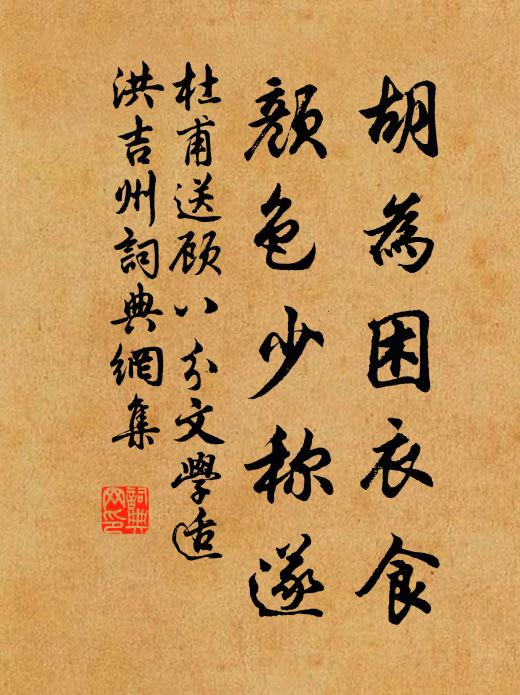 胡為困衣食
顏色少稱遂
杜甫送顧八分文學适
洪吉州詞典網集
詞典
网印